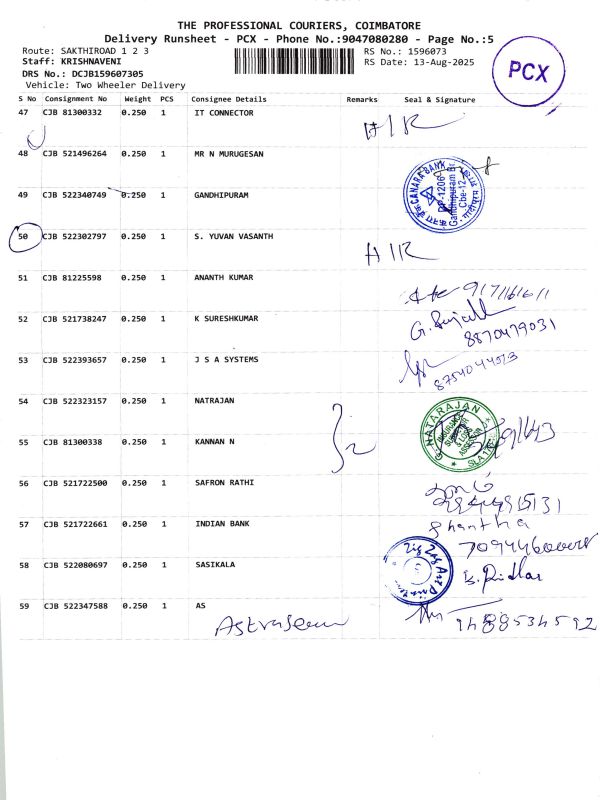 THE PROFESSIONAL COURIERS, COIMBATORE
Delivery Runsheet - PCX - Phone No.:9047080280 - Page No.:5
Route: SAKTHIROAD 1 2 3
RS No.: 1596073
Staff: KRISHNAVENI
RS Date: 13-Aug-2025
DRS No.: DCJB159607305
Vehicle: Two Wheeler Delivery
PCX
S No Consignment No Weight PCS Consignee Details Remarks Seal & Signature
47 CJB 81300332 0.250 1 IT CONNECTOR
48 CJB 521496264 0.250 1 MR N MURUGESAN
CANARA BANK
DP-1206
Gandhipuram Br.
Cbe-12
49 CJB 522340749 0.250 1 GANDHIPURAM
50 CJB 522302797 0.250 1 S. YUVAN VASANTH
51 CJB 81225598 0.250 1 ANANTH KUMAR
52 CJB 521738247 0.250 1 K SURESHKUMAR
8870479031
53 CJB 522393657 0.250 1 J S A SYSTEMS
54 CJB 522323157 0.250 1 NATRAJAN
G. NATARAJAN
55 CJB 81300338 0.250 1 KANNAN N
56 CJB 521722500 0.250 1 SAFRON RATHI
57 CJB 521722661 0.250 1 INDIAN BANK
Shantha
58 CJB 522080697 0.250 1 SASIKALA
Zig Zag Art Printers
59 CJB 522347588 0.250 1 AS
9488534592